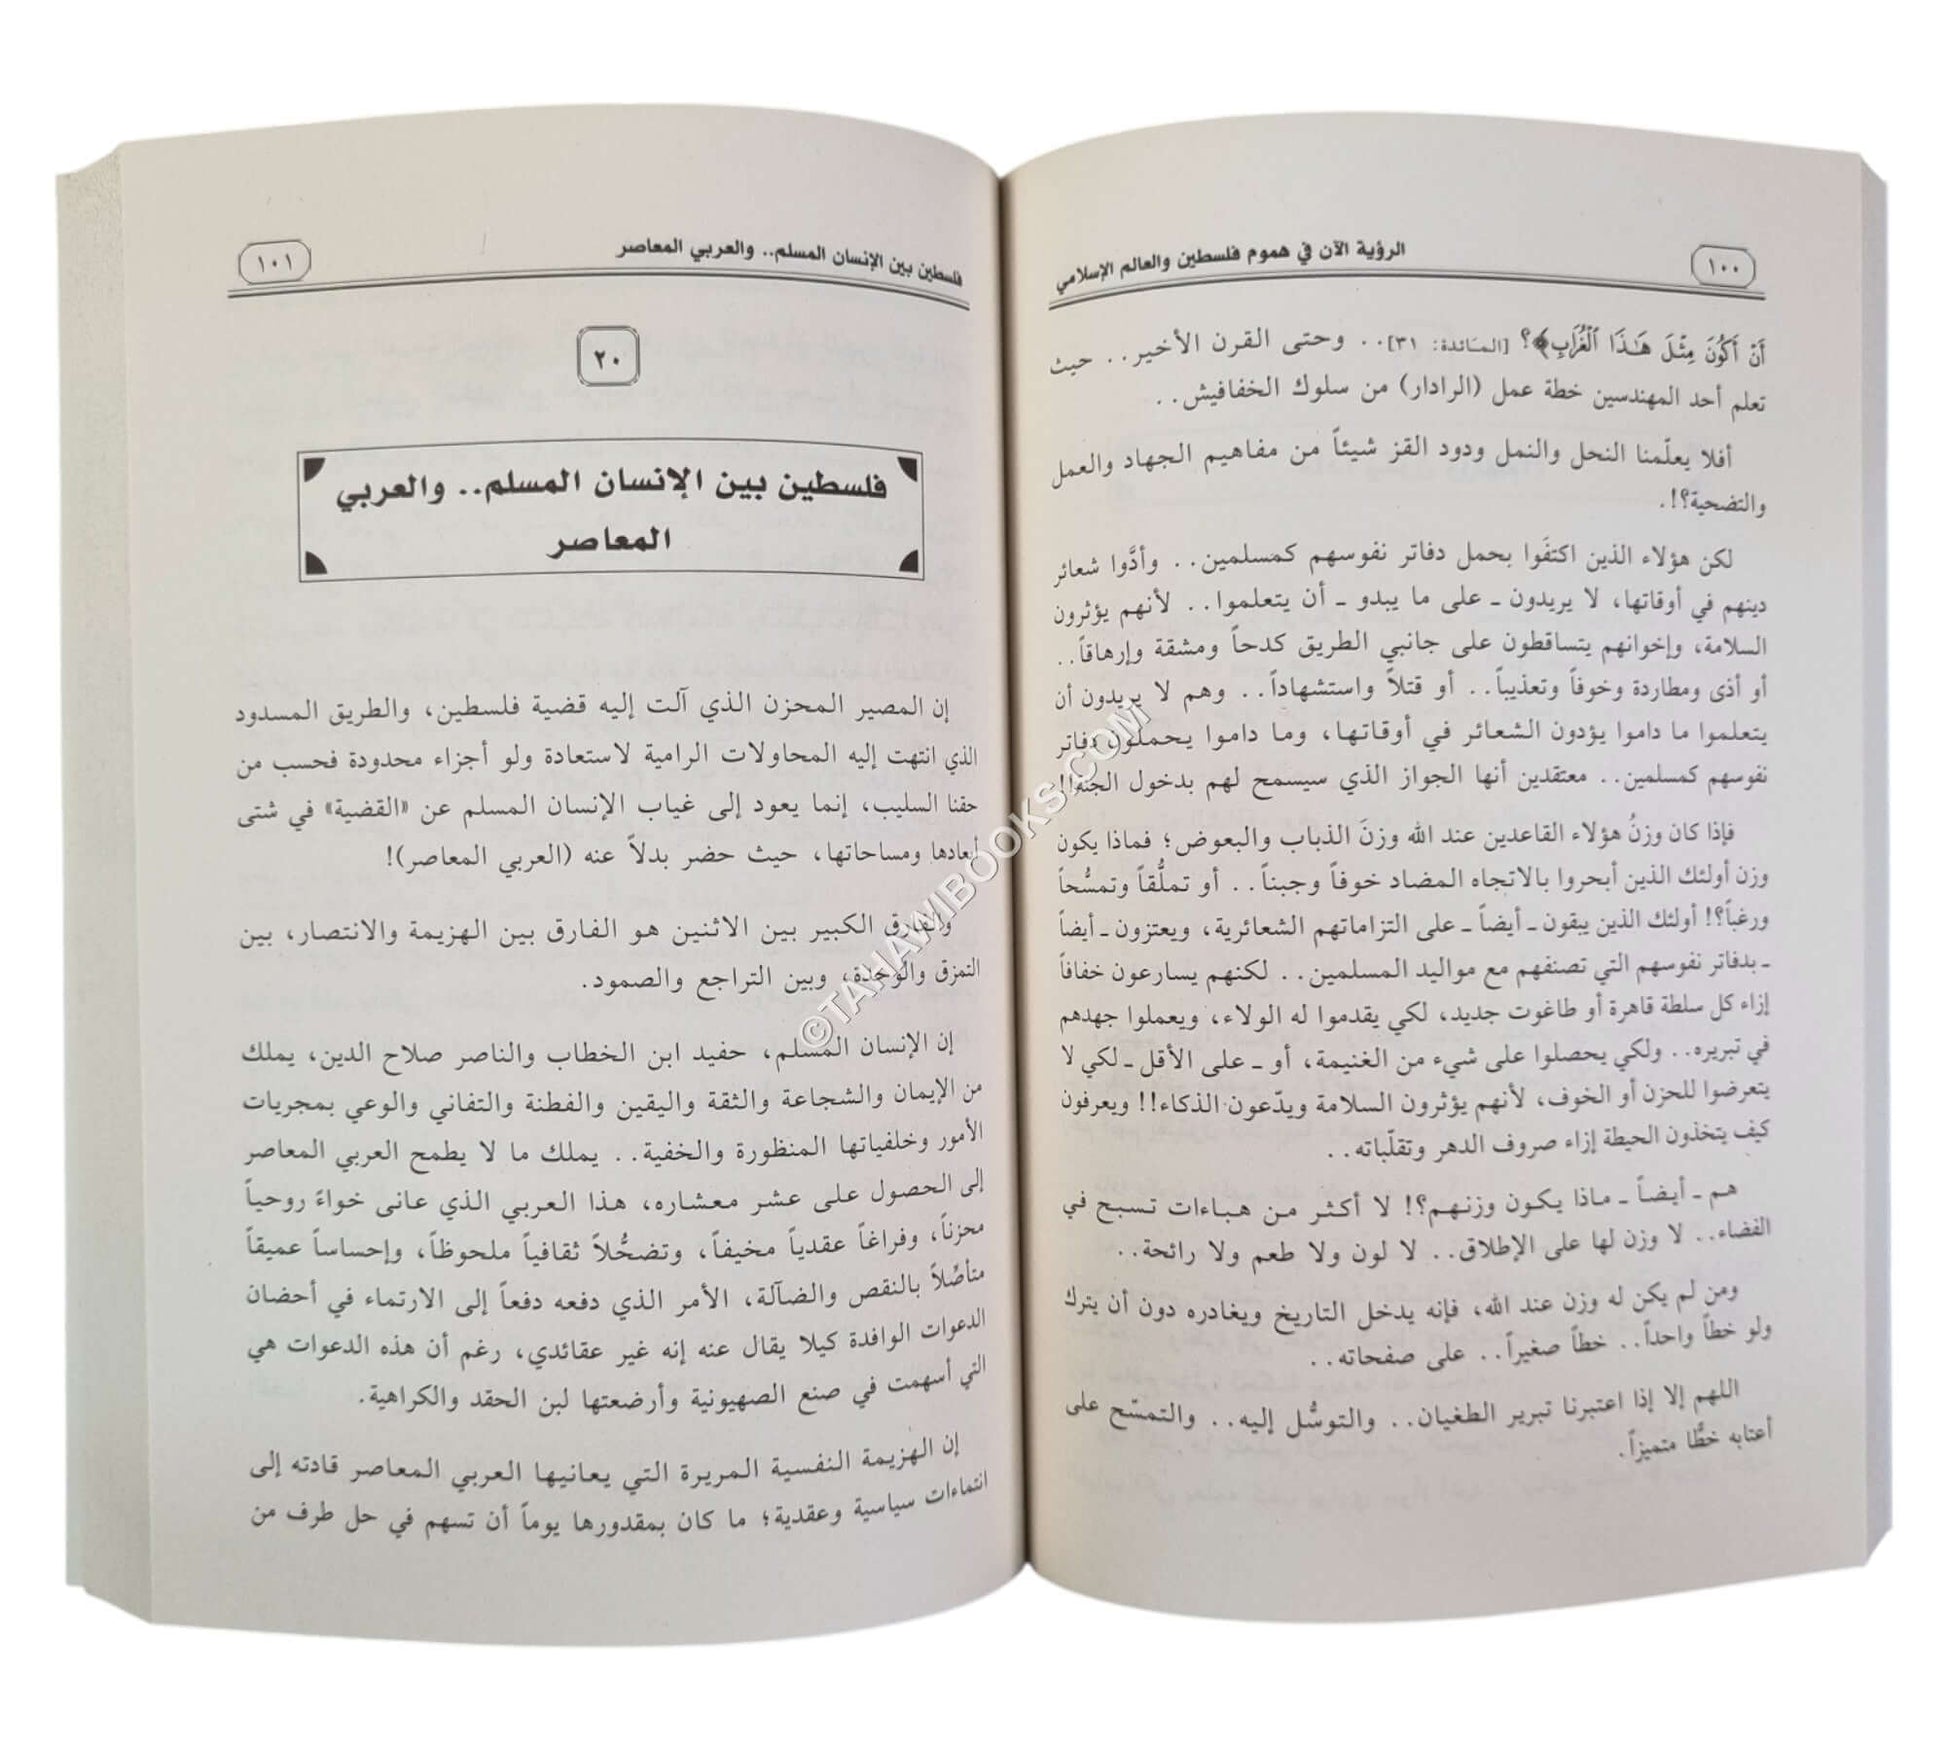 ١٠٠
الرؤية الآن في هموم فلسطين والعالم الإسلامي
أَنْ أَكُونَ مِثْلَ هَٰذَا ٱلْغُرَابِ﴾؟ [المائدة: ٣١].. وحتى القرن الأخير.. حيث
تعلم أحد المهندسين خطة عمل (الرادار) من سلوك الخفافيش..
أفلا يعلّمنا النحل والنمل ودود القز شيئاً من مفاهيم الجهاد والعمل
والتضحية؟!.
لكن هؤلاء الذين اكتفَوا بحمل دفاتر نفوسهم كمسلمين.. وأدَّوا شعائر
دينهم في أوقاتها، لا يريدون ـ على ما يبدو ـ أن يتعلموا.. لأنهم يؤثرون
السلامة، وإخوانهم يتساقطون على جانبي الطريق كدحاً ومشقة وإرهاقاً..
أو أذى ومطاردة وخوفاً وتعذيباً.. أو قتلاً واستشهاداً.. وهم لا يريدون أن
يتعلموا ما داموا يؤدون الشعائر في أوقاتها، وما داموا يحملون دفاتر
نفوسهم كمسلمين.. معتقدين أنها الجواز الذي سيسمح لهم بدخول الجنة!!
فإذا كان وزنُ هؤلاء القاعدين عند الله وزنَ الذباب والبعوض؛ فماذا يكون
وزن أولئك الذين أبحروا بالاتجاه المضاد خوفاً وجبناً.. أو تملُّقاً وتمسُّحاً
ورغباً؟! أولئك الذين يبقون ـ أيضاً ـ على التزاماتهم الشعائرية، ويعتزون ـ أيضاً
ـ بدفاتر نفوسهم التي تصنفهم مع مواليد المسلمين.. لكنهم يسارعون خفافاً
إزاء كل سلطة قاهرة أو طاغوت جديد، لكي يقدموا له الولاء، ويعملوا جهدهم
في تبريره.. ولكي يحصلوا على شيء من الغنيمة، أو ـ على الأقل ـ لكي لا
يتعرضوا للحزن أو الخوف، لأنهم يؤثرون السلامة ويدّعون الذكاء!! ويعرفون
كيف يتخذون الحيطة إزاء صروف الدهر وتقلّباته..
هم ـ أيضاً ـ ماذا يكون وزنهم؟! لا أكثر من هباءات تسبح في
الفضاء.. لا وزن لها على الإطلاق.. لا لون ولا طعم ولا رائحة..
ومن لم يكن له وزن عند الله، فإنه يدخل التاريخ ويغادره دون أن يترك
ولو خطاً واحداً.. خطاً صغيراً.. على صفحاته..
اللهم إلا إذا اعتبرنا تبرير الطغيان.. والتوسُّل إليه.. والتمسّح على
أعتابه خطًّا متميزاً.
فلسطين بين الإنسان المسلم.. والعربي المعاصر
١٠١
٢٠
فلسطين بين الإنسان المسلم.. والعربي
المعاصر
إن المصير المحزن الذي آلت إليه قضية فلسطين، والطريق المسدود
الذي انتهت إليه المحاولات الرامية لاستعادة ولو أجزاء محدودة فحسب من
حقنا السليب، إنما يعود إلى غياب الإنسان المسلم عن «القضية» في شتى
أبعادها ومساحاتها، حيث حضر بدلاً عنه (العربي المعاصر)!
والفارق الكبير بين الاثنين هو الفارق بين الهزيمة والانتصار، بين
التمزق والوحدة، وبين التراجع والصمود.
إن الإنسان المسلم، حفيد ابن الخطاب والناصر صلاح الدين، يملك
من الإيمان والشجاعة والثقة واليقين والفطنة والتفاني والوعي بمجريات
الأمور وخلفياتها المنظورة والخفية.. يملك ما لا يطمح العربي المعاصر
إلى الحصول على عشر معشاره، هذا العربي الذي عانى خواءً روحياً
محزناً، وفراغاً عقدياً مخيفاً، وتضحُّلاً ثقافياً ملحوظاً، وإحساساً عميقاً
متأصِّلاً بالنقص والضآلة، الأمر الذي دفعه دفعاً إلى الارتماء في أحضان
الدعوات الوافدة كيلا يقال عنه إنه غير عقائدي، رغم أن هذه الدعوات هي
التي أسهمت في صنع الصهيونية وأرضعتها لبن الحقد والكراهية.
إن الهزيمة النفسية المريرة التي يعانيها العربي المعاصر قادته إلى
انتماءات سياسية وعقدية؛ ما كان بمقدورها يوماً أن تسهم في حل طرف من
©TAHAWIBOOKS.COM